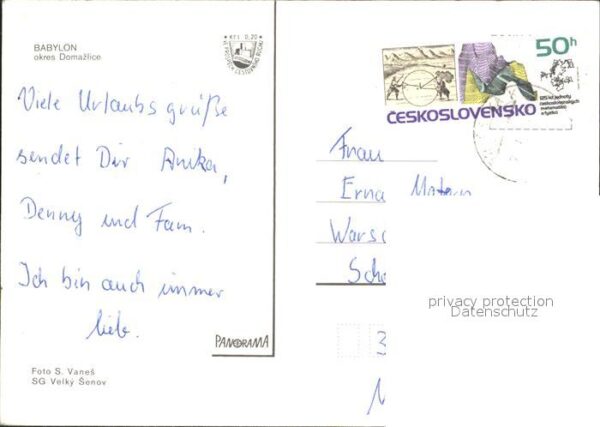 BABYLON
okres Domažlice
Kčs 0,20
Viele Urlaubsgrüße
sendet Dir Anika,
Denny und Fam.
Ich bin auch immer
lieb.
PANORAMA
Foto S. Vaneš
SG Velký Šenov
50h
ČESKOSLOVENSKO
125 let jednoty
československých
matematiků
a fyziků
Frau
Erna
Warsc
Sch
3
privacy protection
Datenschutz